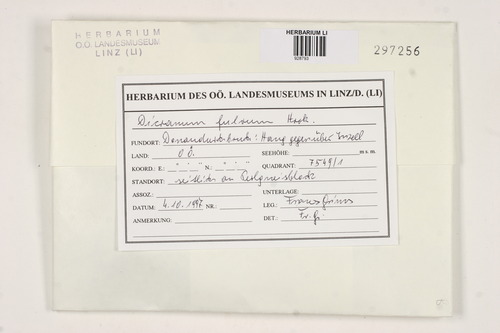 HERBARIUM
O.Ö. LANDESMUSEUM
LINZ (LI)
HERBARIUM LI
297256
HERBARIUM DES OÖ. LANDESMUSEUMS IN LINZ/D. (LI)
Dicranum fulvum Hook.
FUNDORT: Hang gegenüber
LAND: OÖ. SEEHÖHE: m s. m.
KOORD.: E.: ° ' " N.: ° ' " QUADRANT: 7549/1
STANDORT: seitlich an
ASSOZ.: UNTERLAGE:
DATUM: 4.10.1997 NR.: LEG.: Franz Grims
ANMERKUNG: DET.: Fr. Gr.